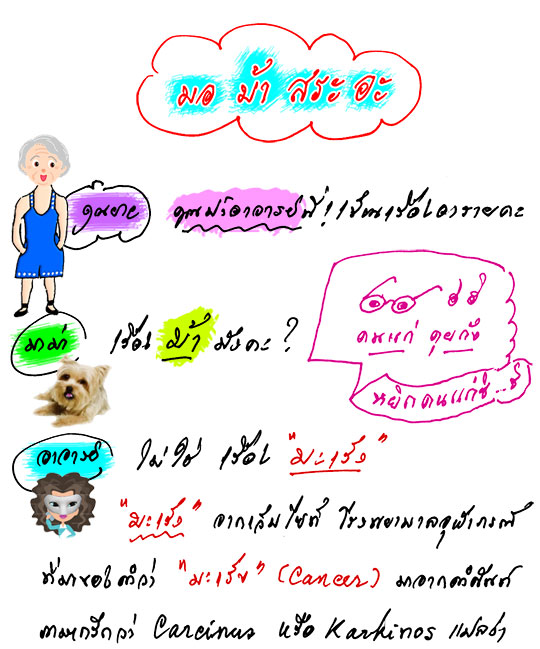 มอ ม้า สระ อะ
คุณยาย คุณแม่อาจารย์ขี่! เขียนเรื่องอะรายคะ
คนแก่ คุยกัน
หยิกคนแก่ซี่...ซี่
มาม่า เรื่อง ม้า มังคะ?
อาจารย์ ไม่ใช่ เรื่อง "มะเร็ง"
"มะเร็ง" จากเว็บไซท์ โรงพยาบาลจุฬาภรณ์
ที่มาของคำว่า "มะเร็ง" (Cancer) มาจากคำศัพท์
ภาษากรีกว่า Carcinus หรือ Karkinos แปลว่า